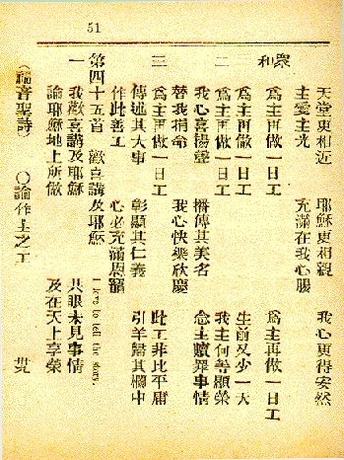 51
天堂更相近 耶穌更相親 我心更得安然
主愛主光 充滿在我心腸
衆和 爲主再做一日工 爲主再做一日工
爲主再做一日工 生前又少一天
二 爲主再做一日工 我主何等顯榮
我心喜揚聲 播傳其美名 念主贖罪事情
替我捐命 我心快樂欣慶
三 爲主再做一日工 此工非比平庸
傳述其大事 彰顯其仁義 引羊歸其欄中
作此善工 心必充滿恩寵
第四十五首 歡喜講及耶穌 I love to tell the story.
一 我歡喜講及耶穌 其眼未見事情
論耶穌地上所做 及在天上享榮
(福音聖詩) ○論作主之工